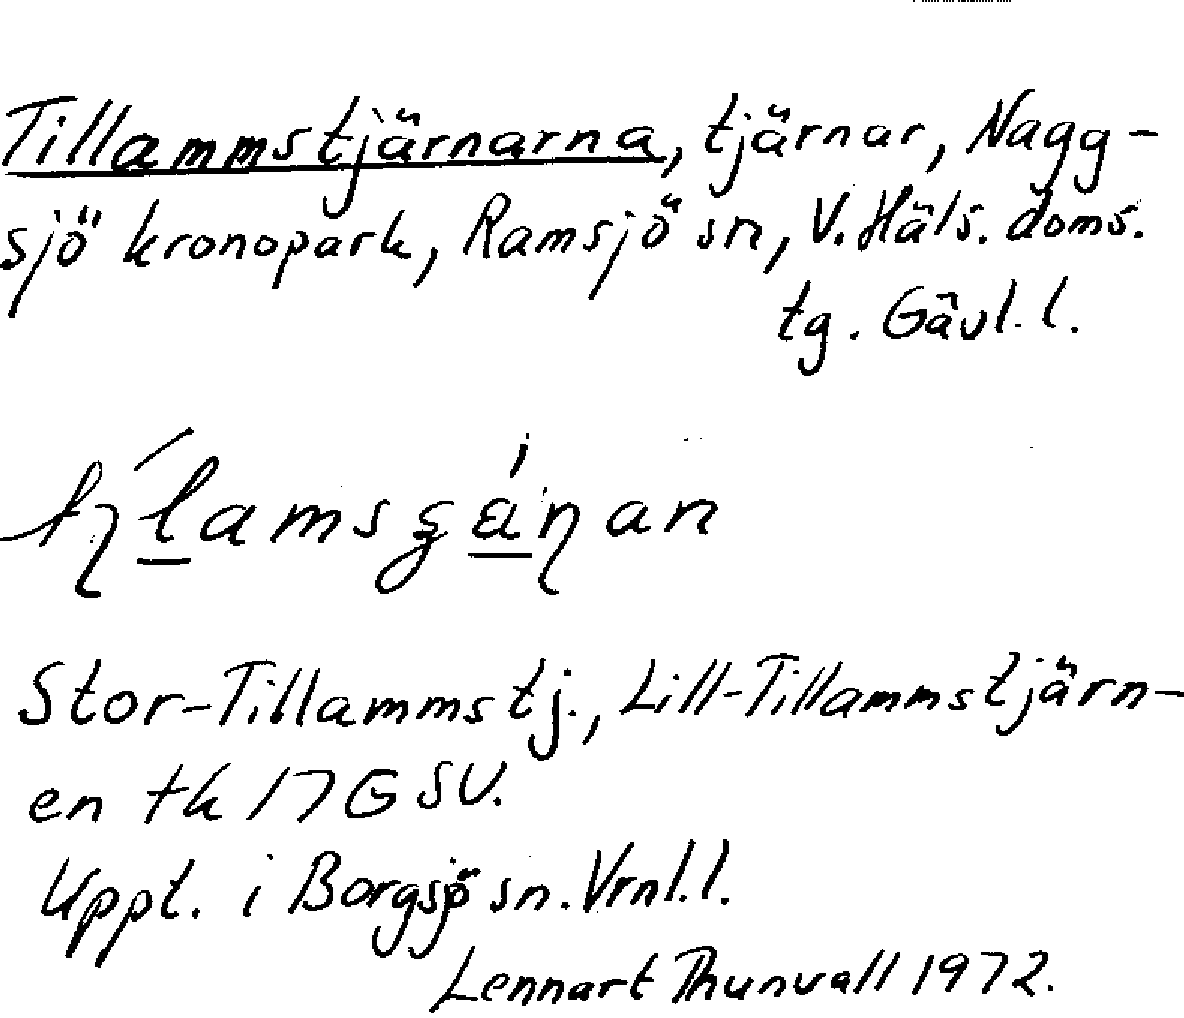 Tillammstjärnarna, tjärnar, Nagg-
sjö kronopark, Ramsjö sn, V. Häls. doms.
tg. Gävl. l.
Stor-Tillammstj., Lill-Tillammstjärn-
en tk 17 G SV.
Uppt. i Borgsjö sn. Vrnl. l.
Lennart Thunvall 1972.